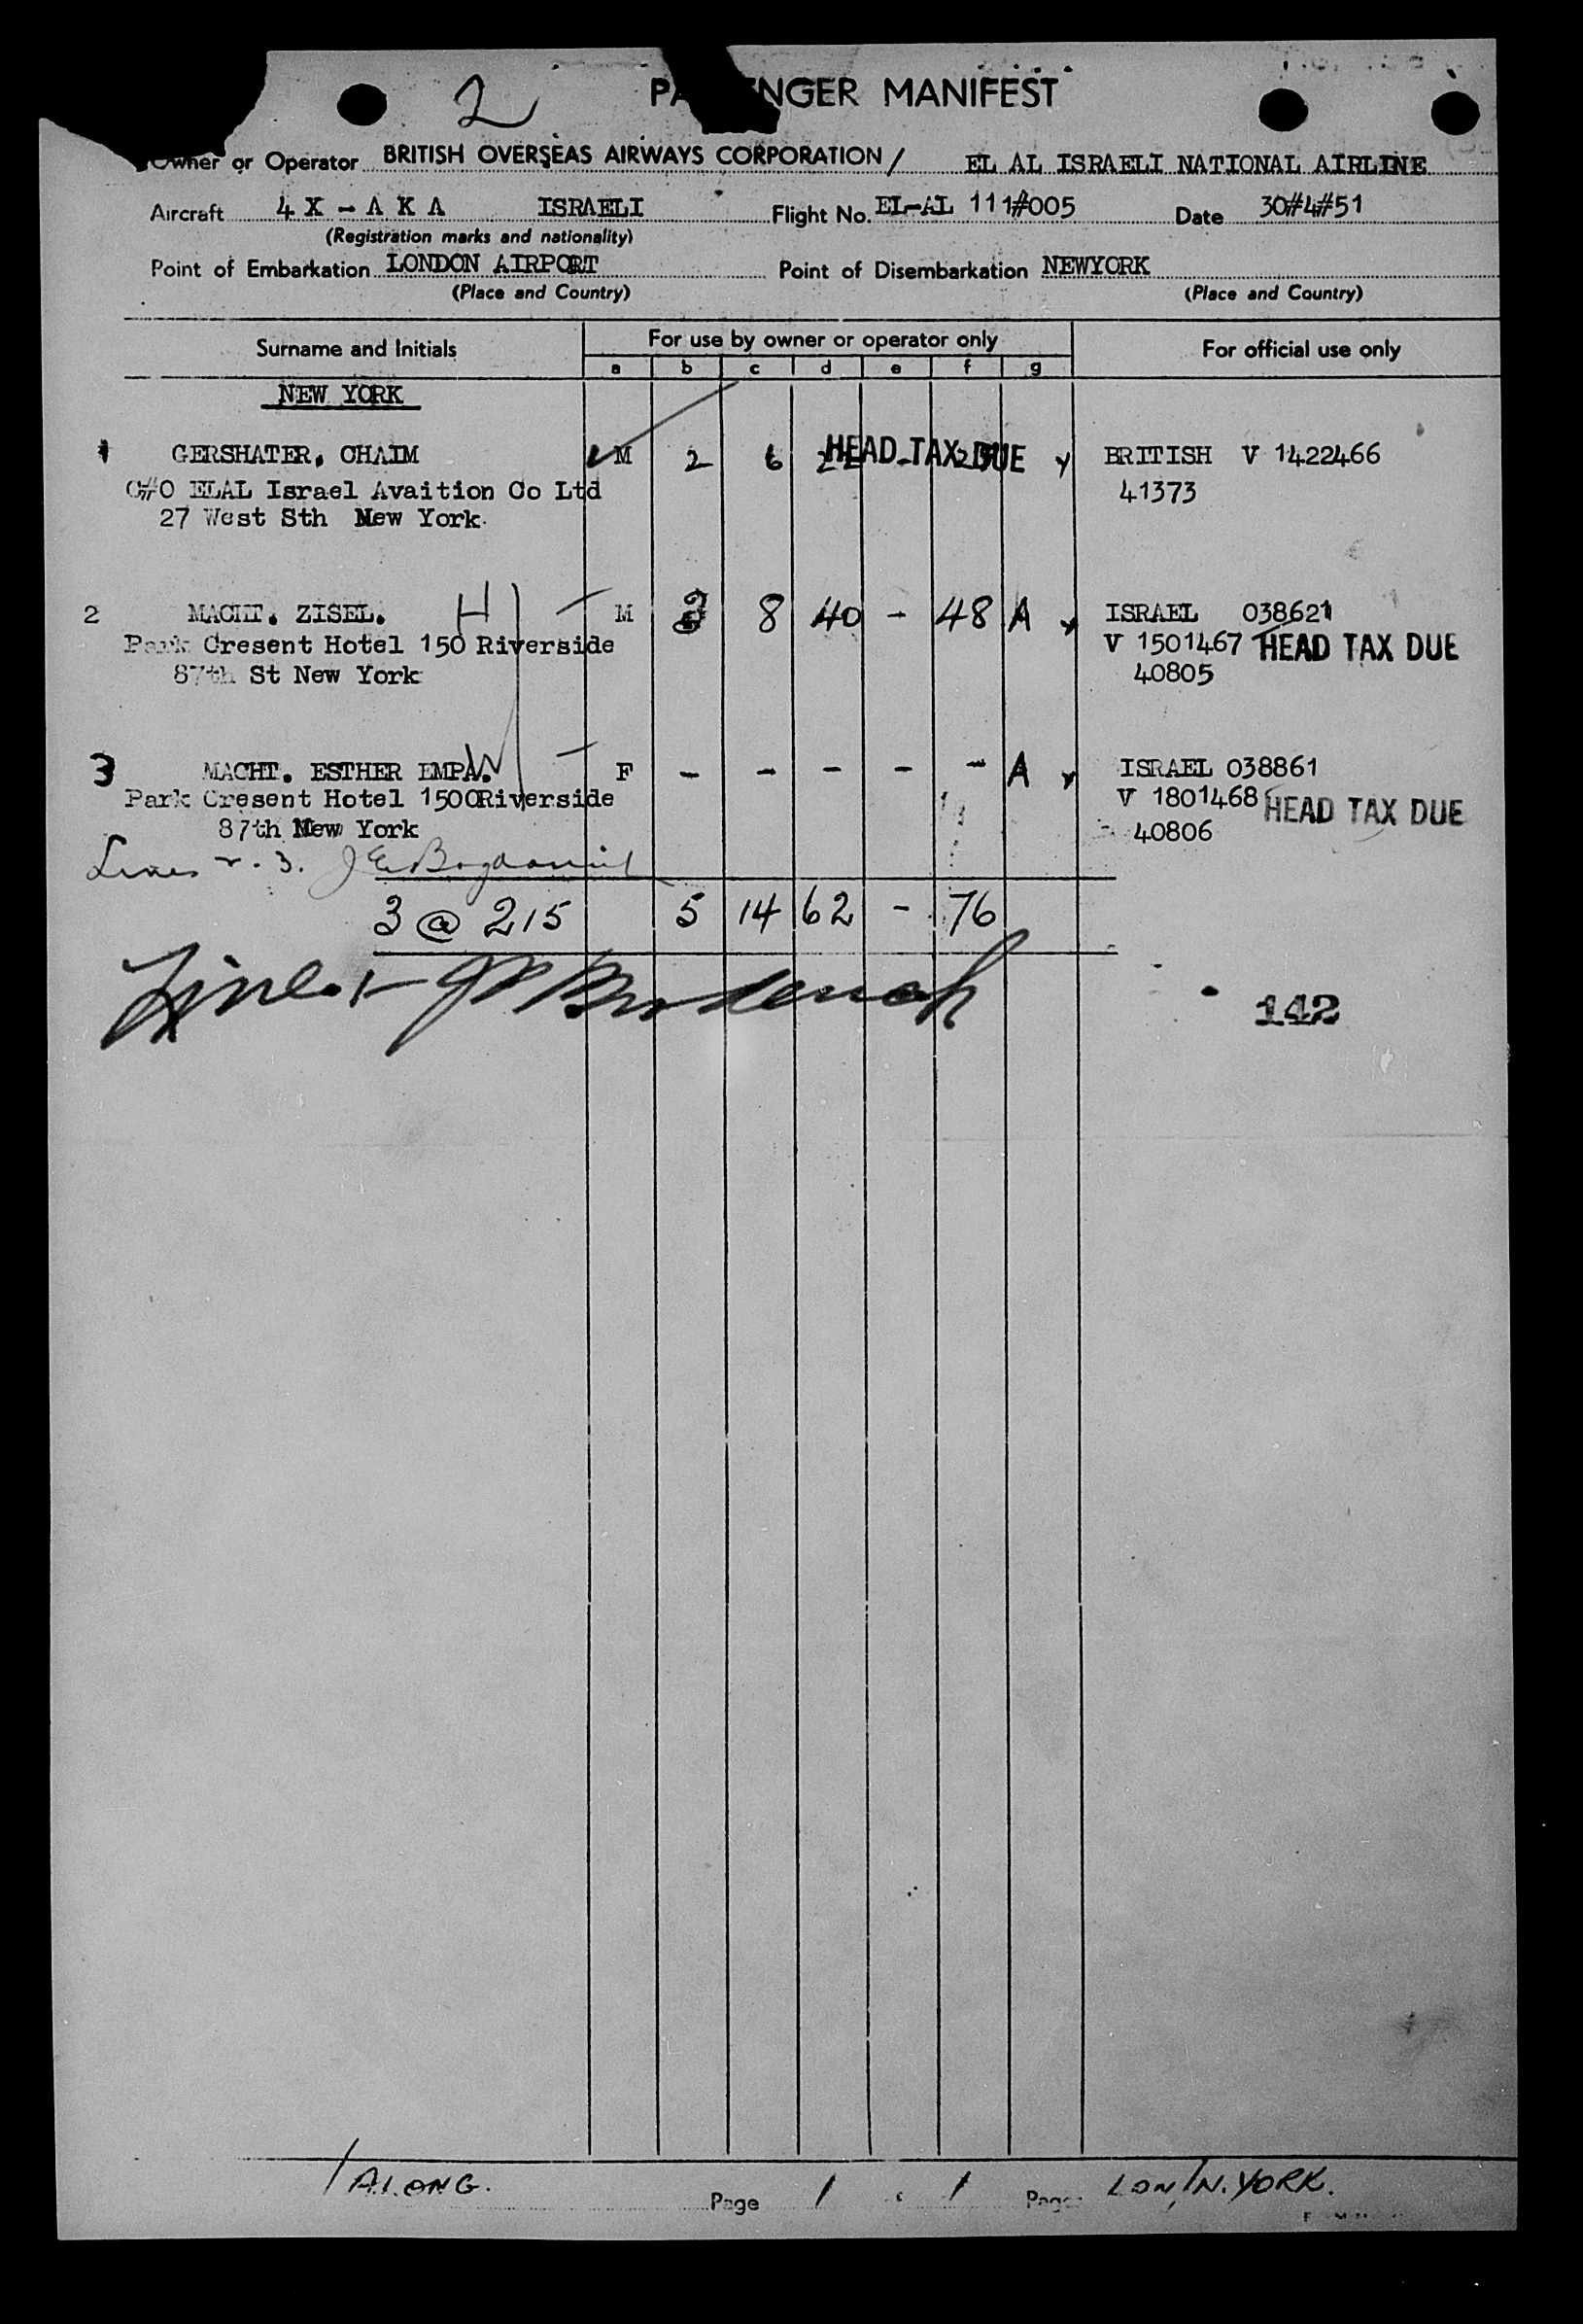 2
PASSENGER MANIFEST
Owner or Operator BRITISH OVERSEAS AIRWAYS CORPORATION / EL AL ISRAELI NATIONAL AIRLINE
Aircraft 4 X - A K A ISRAELI Flight No. EL-AL 111#005 Date 30#4#51
(Registration marks and nationality)
Point of Embarkation LONDON AIRPORT Point of Disembarkation NEWYORK
(Place and Country) (Place and Country)
Surname and Initials For use by owner or operator only For official use only
a b c d e f g
NEW YORK
1 GERSHATER, CHAIM M 2 6 22 - HEAD TAX DUE Y BRITISH V 1422466
C#O ELAL Israel Avaition Co Ltd 41373
27 West Sth New York
2 MACHT. ZISEL. H M 3 8 40 - 48 A Y ISRAEL 038621
Park Cresent Hotel 150 Riverside V 1501467 HEAD TAX DUE
87th St New York 40805
3 MACHT. ESTHER EMPA. W F - - - - - A Y ISRAEL 038861
Park Cresent Hotel 1500Riverside V 1801468 HEAD TAX DUE
87th New York 40806
Lines 2-3.
3 @ 215 5 14 62 - 76
Line 1-
142
/ALONG. Page 1 1 Page LON/N.YORK.